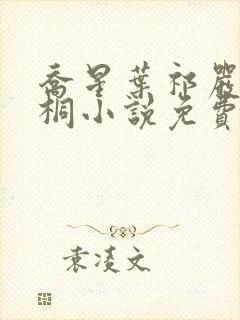 喬星葉祁嚴
桐小說免費
袁凌文